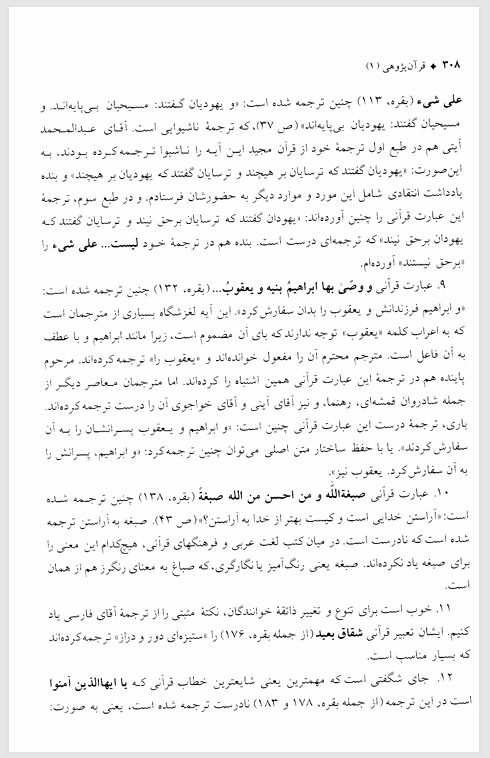 ۳۰۸ ◆ قرآن‌پژوهی (۱)
علی شیء (بقره، ۱۱۳) چنین ترجمه شده است: «و یهودیان گفتند: مسیحیان بی‌پایه‌اند. و
مسیحیان گفتند: یهودیان بی‌پایه‌اند» (ص ۳۷)، که ترجمهٔ ناشیوایی است. آقای عبدالمحمد
آیتی هم در طبع اول ترجمهٔ خود از قرآن مجید این آیه را ناشیوا ترجمه کرده بودند، به
این‌صورت: «یهودیان گفتند که ترسایان بر هیچند و ترسایان گفتند که یهودیان بر هیچند» و بنده
یادداشت انتقادی شامل این مورد و موارد دیگر به حضورشان فرستادم. و در طبع سوم، ترجمهٔ
این عبارت قرآنی را چنین آورده‌اند: «یهودان گفتند که ترسایان برحق نیند و ترسایان گفتند که
یهودان برحق نیند» که ترجمه‌ای درست است. بنده هم در ترجمهٔ خود لیست... علی شیء را
«برحق نیستند» آورده‌ام.
۹. عبارت قرآنی و وصّیٰ بها ابراهیمُ بنیه و یعقوبُ... (بقره، ۱۳۲) چنین ترجمه شده است:
«و ابراهیم فرزندانش و یعقوب را بدان سفارش کرد». این آیه لغزشگاه بسیاری از مترجمان است
که به اعراب کلمه «یعقوب» توجه ندارند که بای آن مضموم است، زیرا مانند ابراهیم و با عطف
به آن فاعل است. مترجم محترم آن را مفعول خوانده‌اند و «یعقوب را» ترجمه کرده‌اند. مرحوم
پاینده هم در ترجمهٔ این عبارت قرآنی همین اشتباه را کرده‌اند. اما مترجمان معاصر دیگر از
جمله شادروان قمشه‌ای، رهنما، و نیز آقای آیتی و آقای خواجوی آن را درست ترجمه کرده‌اند.
باری، ترجمهٔ درست این عبارت قرآنی چنین است: «و ابراهیم و یعقوب پسرانشان را به آن
سفارش کردند». یا با حفظ ساختار متن اصلی می‌توان چنین ترجمه کرد: «و ابراهیم، پسرانش را
به آن سفارش کرد. یعقوب نیز».
۱۰. عبارت قرآنی صبغةاللّٰه و من احسن من الله صبغةً (بقره، ۱۳۸) چنین ترجمه شده
است: «آراستن خدایی است و کیست بهتر از خدا به آراستن؟» (ص ۴۳). صبغه به آراستن ترجمه
شده است که نادرست است. در میان کتب لغت عربی و فرهنگهای قرآنی، هیچ‌کدام این معنی را
برای صبغه یاد نکرده‌اند. صبغه یعنی رنگ‌آمیز یا نگارگری، که صباغ به معنای رنگرز هم از همان
است.
۱۱. خوب است برای تنوع و تغییر ذائقهٔ خوانندگان، نکتهٔ مثبتی را از ترجمهٔ آقای فارسی یاد
کنیم. ایشان تعبیر قرآنی شقاق بعید (از جمله بقره، ۱۷۶) را «ستیزه‌ای دور و دراز» ترجمه کرده‌اند
که بسیار مناسب است.
۱۲. جای شگفتی است که مهمترین یعنی شایعترین خطاب قرآنی که یا ایهاالذین آمنوا
است در این ترجمه (از جمله بقره، ۱۷۸ و ۱۸۳) نادرست ترجمه شده است، یعنی به صورت: